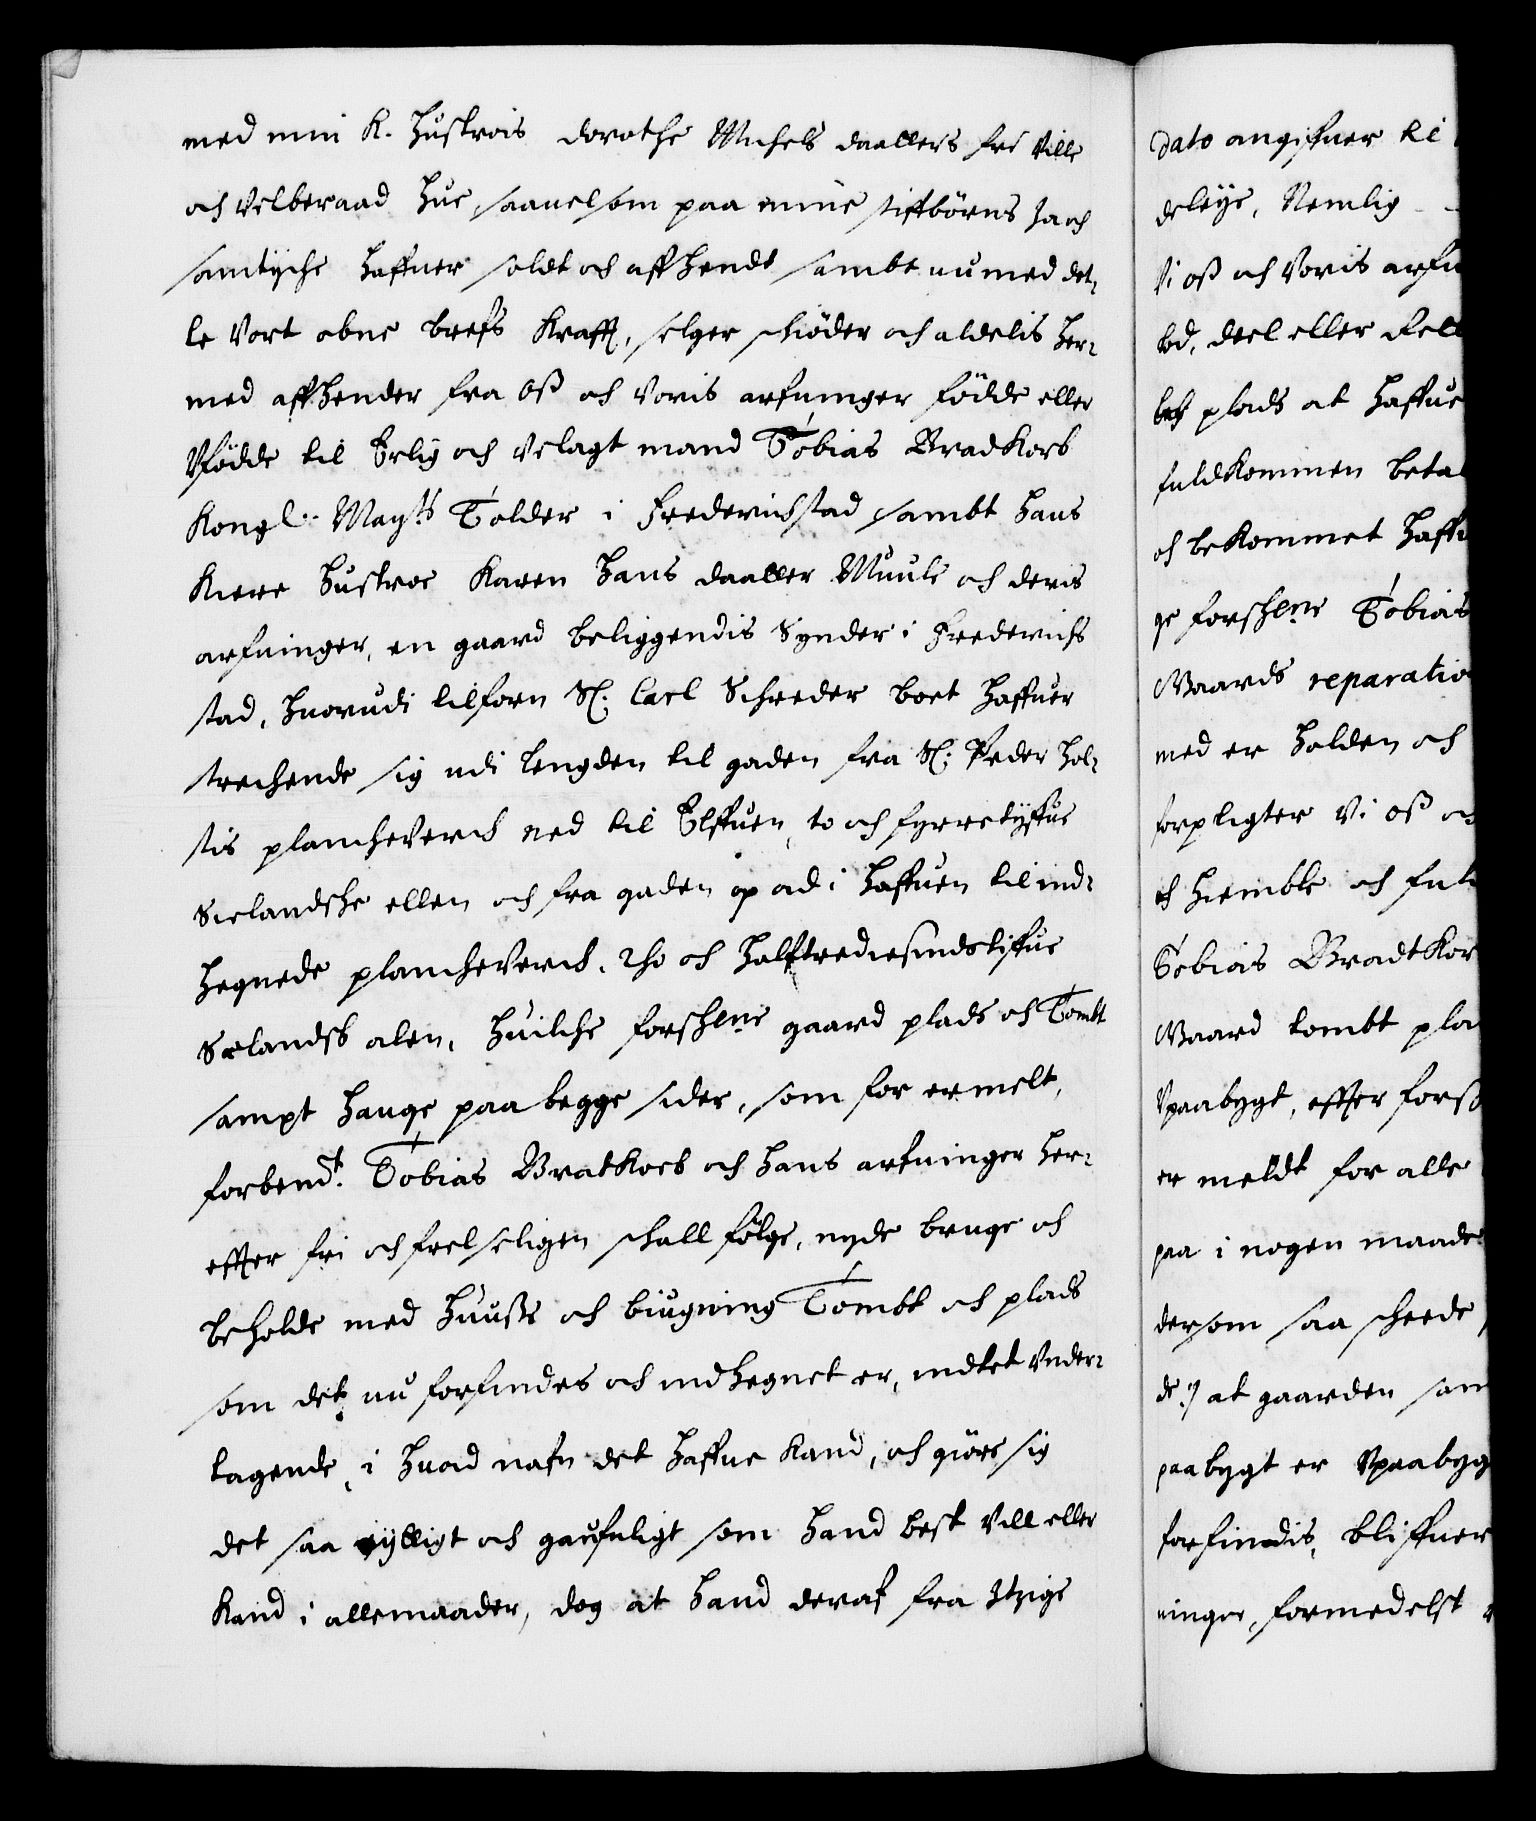 med min K. Hustrois dorothe Michels daatters fri Ville
och velberaad Hue, saauelsom paa mine stiftbörns Ja och
samtyche Haffuer soldt och affhendt sambt nu med det-
te Vort obne brefs Krafft, selger schiöder och aldelis Her-
med affhender fra Oß och Voris arfuinger födde eller
Vfödde til Erlig och Velagt mand Tobias Bradkorb
Kongl. Mayts Tolder i Frederichstad sambt Hans
Kiere Hustroe Karen Hans daatter Muule och deris
arfuinger, en gaard beliggendis Synder i Frederichs
stad, Huorudi tilforn Sl. Carl Schreder boet Haffuer
strechende sig udi lengden til gaden fra Sl. Peder Hol-
stis plancheverch ned til Elffuen, to och fyrretyffue
Sielandsche ellen och fra gaden op ad i Haffuen til ind-
Hegnede plancheverch, och Halftrediesindstiffue
Sielandsk alen, Huilche forschene gaard plads och Tombt
sampt Hauge paa begge sider, som for ermelt,
forbend.t Tobias Bratkorb och Hans arfuinger Her-
effter fri och frelseligen schall fölge, nyde bruge och
beholde med Huuß och biugning Tombt och plads
som det nu forfindes och indhegnet er, indtet Vnder-
tagende, i Huad nafn det Haffue Kand, och giöre sig
det saa nylligt och gaufnligt som Hand best Vill eller
Kand i allemaader, dog at Hand deraf fra Itzige
dato angifuer
deleije, Nemlig
Vi oß och Voris arfu
lod, deel eller
plads at Haffue
fuldkommen beta
och bekommet Haffu
ge forschene Tobias
Gaards reparatio
med er Holden och
forpligter Vi oß oc
at Hiemble och
Tobias Bradtkor
Gaard tombt pla
Vpaabygt, effter forß
er meldt for alle
paa i nogen maade
dersom saa scheede
de:/ at gaarden sam
paabygt er Vpaabyg
forfindis, bliffuer
uinger, formedelst